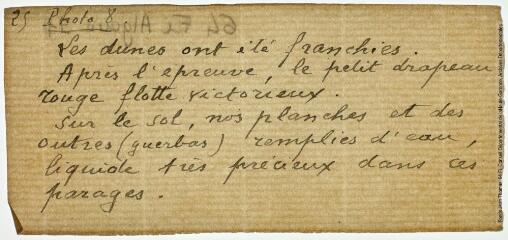 25 Photo 8
Les dunes ont été franchies.
Après l'epreuve, le petit drapeau
rouge flotte victorieux.
Sur le sol, nos planches et des
outres (guerbas) remplies d'eau,
liquide très précieux dans ces
parages.